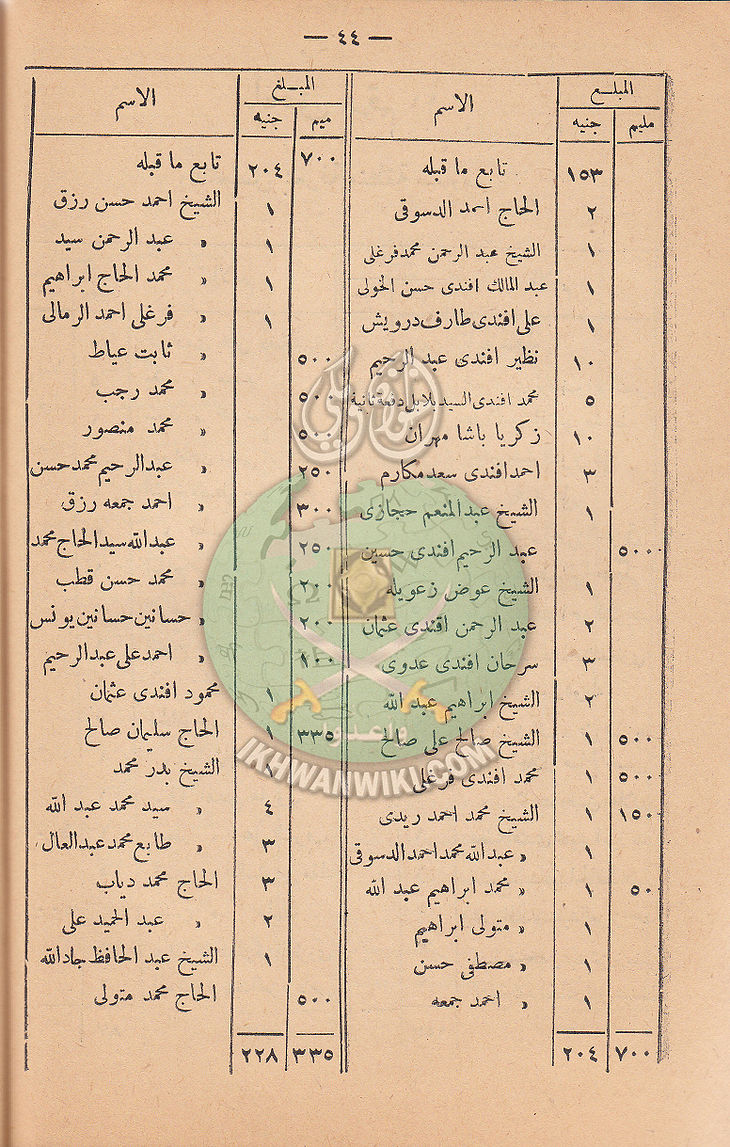 — ٤٤ —
المبلـغ الاسم
مليم جنيه
١٥٣ تابع ما قبله
٢ الحاج احمد الدسوقى
١ الشيخ عبد الرحمن محمد فرغلى
١ عبد المالك افندى حسن الخولى
١ على افندى طارف درويش
١٠ نظير افندى عبد الرحيم
٥ محمد افندى السيد بلابل دفعة ثانية
١٠ زكريا باشا مهران
٣ احمد افندى سعد مكارم
١ الشيخ عبد المنعم حجازى
٥٠٠ عبد الرحيم افندى حسين
١ الشيخ عوض زعويله
٢ عبد الرحمن افندى عثمان
٣ سرحان افندى عدوى
٢ الشيخ ابراهيم عبد الله
٥٠٠ ١ الشيخ صالح على صالح
٥٠٠ ١ محمد افندى فرغلى
١٥٠ ١ الشيخ محمد احمد ريدى
١ « عبد الله محمد احمد الدسوقى
٥٠ ١ « محمد ابراهيم عبد الله
١ « متولى ابراهيم
١ « مصطفى حسن
١ « احمد جمعه
٧٠٠ ٢٠٤
المبلـغ الاسم
ميم جنيه
٧٠٠ ٢٠٤ تابع ما قبله
١ الشيخ احمد حسن رزق
١ « عبد الرحمن سيد
١ « محمد الحاج ابراهيم
١ « فرغلى احمد الرمالى
٥٠٠ « ثابت عياط
٥٠٠ « محمد رجب
٥٠٠ « محمد منصور
٢٥٠ « عبد الرحيم محمد حسن
٣٠٠ « احمد جمعه رزق
٢٥٠ « عبد الله سيد الحاج محمد
٢٠٠ « محمد حسن قطب
٢٠٠ « حسانين حسانين يونس
١٠٠ « احمد على عبد الرحيم
١ محمود افندى عثمان
٣٣٥ ١ الحاج سليمان صالح
١ الشيخ بدر محمد
٤ « سيد محمد عبد الله
٣ « طايع محمد عبد العال
٣ الحاج محمد دياب
٢ « عبد الحميد على
١ الشيخ عبد الحافظ جاد الله
٥٠٠ الحاج محمد متولى
٣٣٥ ٢٢٨
واعدوا
IKHWANWIKI.COM